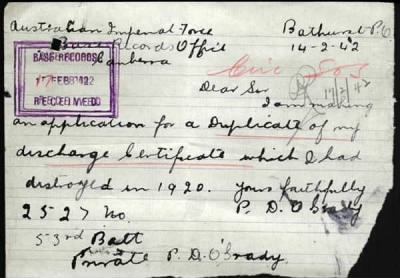 Australian Imperial Force
Bathurst P.O.
Base Records Office
14-2-42
Canberra
BASE RECORDS
17 FEB 1942
17/2/42
Dear Sir
I am making
an application for a Duplicate of my
discharge Certificate which I had
distroyed in 1920. yours faithfully
2527 No. P. D. O'Grady
53rd Batt
Private P. D. O'Grady.